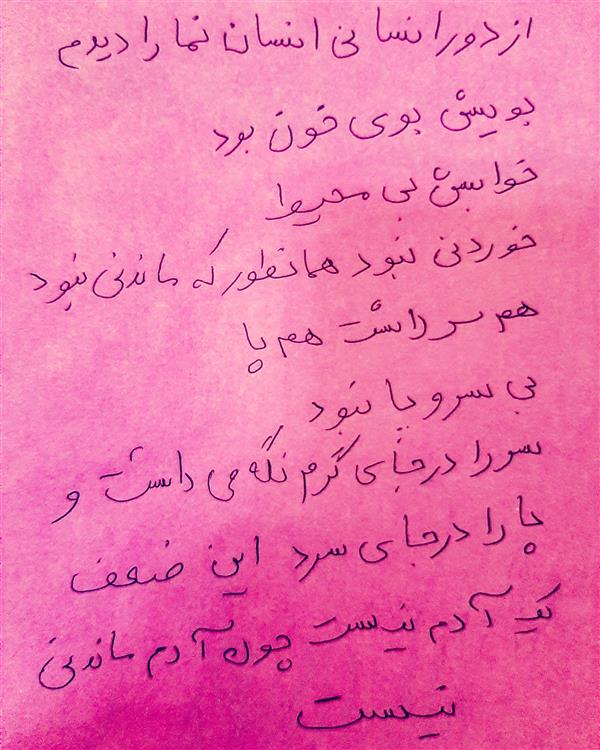 از دور انسانی انسان نما را دیدم
بویش بوی خون بود
خوابش بی محیوا
خوردنی نبود همانطور که ماندنی نبود
هم سر داشت هم پا
بی سر و پا نبود
سر را در جای گرم نگه می داشت و
پا را در جای سرد این ضعف
یک آدم نیست چون آدم ماندنی
نیست